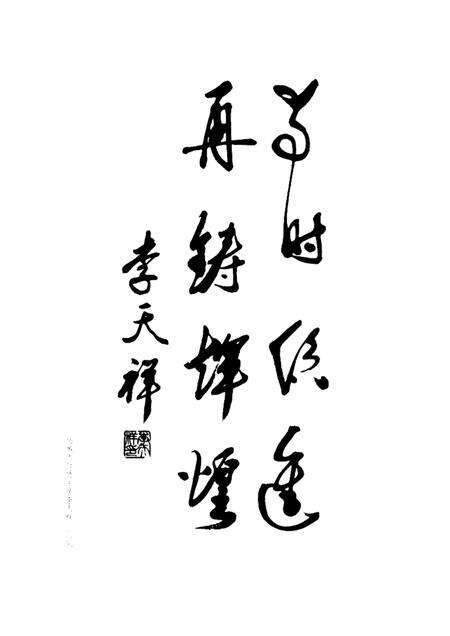 与时俱進
再铸辉煌
李天祥